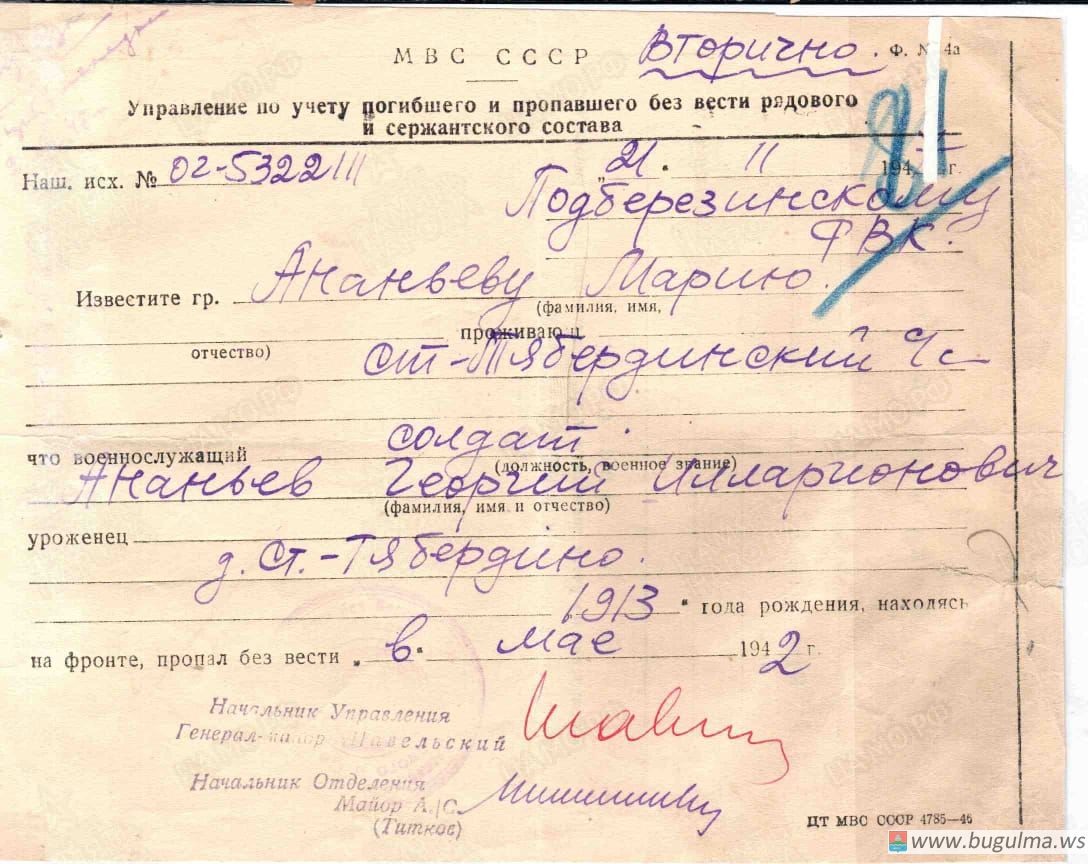 МВС СССР Вторично. Ф. № 4а
Управление по учету погибшего и пропавшего без вести рядового
и сержантского состава
Наш. исх. № 02-5322 „21. 11 194 г.
Подберезинскому
РВК.
Известите гр. Ананьеву Марию.
(фамилия, имя,
проживающ.
отчество)
Ст-Тябердинский с/с
что военнослужащий солдат.
(должность, военное звание)
Ананьев Георгий Илларионович
(фамилия, имя и отчество)
уроженец
д. Ст.-Тябердино.
1913 года рождения, находясь
на фронте, пропал без вести „в" мае 1942 г.
Начальник Управления
Генерал-майор Шавельский
Начальник Отделения
Майор А/С
(Титков)
ЦТ МВС СССР 4785—46
www.bugulma.ws